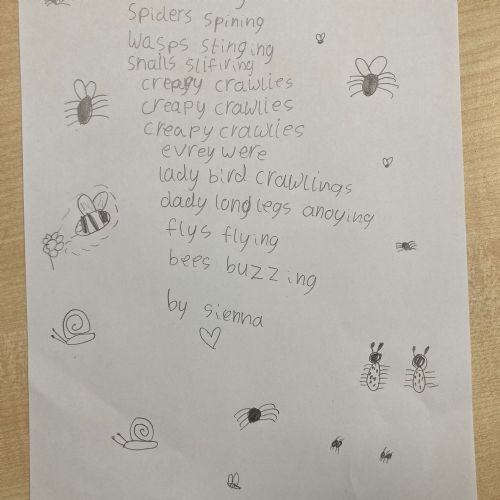 spiders spining
wasps stinging
snails slifiring
creapy crawlies
creapy crawlies
creapy crawlies
evrey were
lady bird crawlings
dady long legs anoying
flys flying
bees buzzing
by sienna